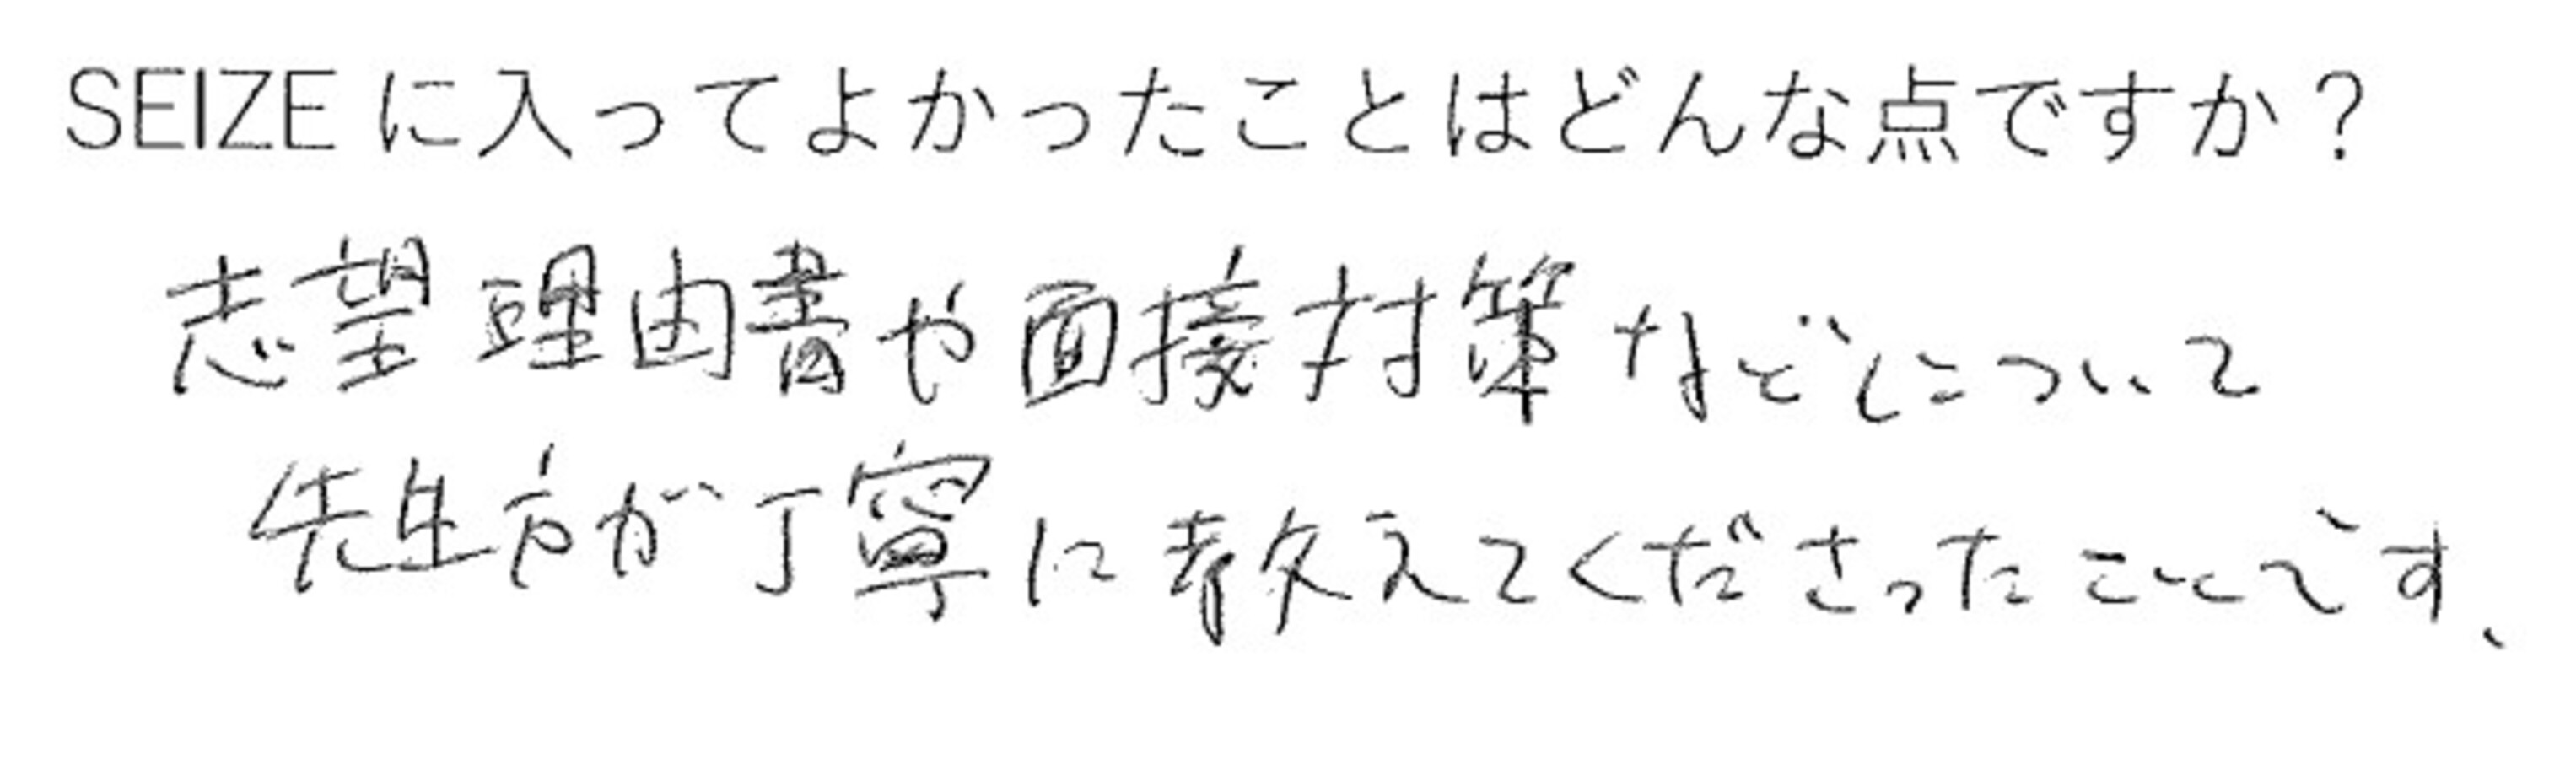 SEIZE に入ってよかったことはどんな点ですか？
志望理由書や面接対策などについて
先生方が丁寧に教えてくださったことです、